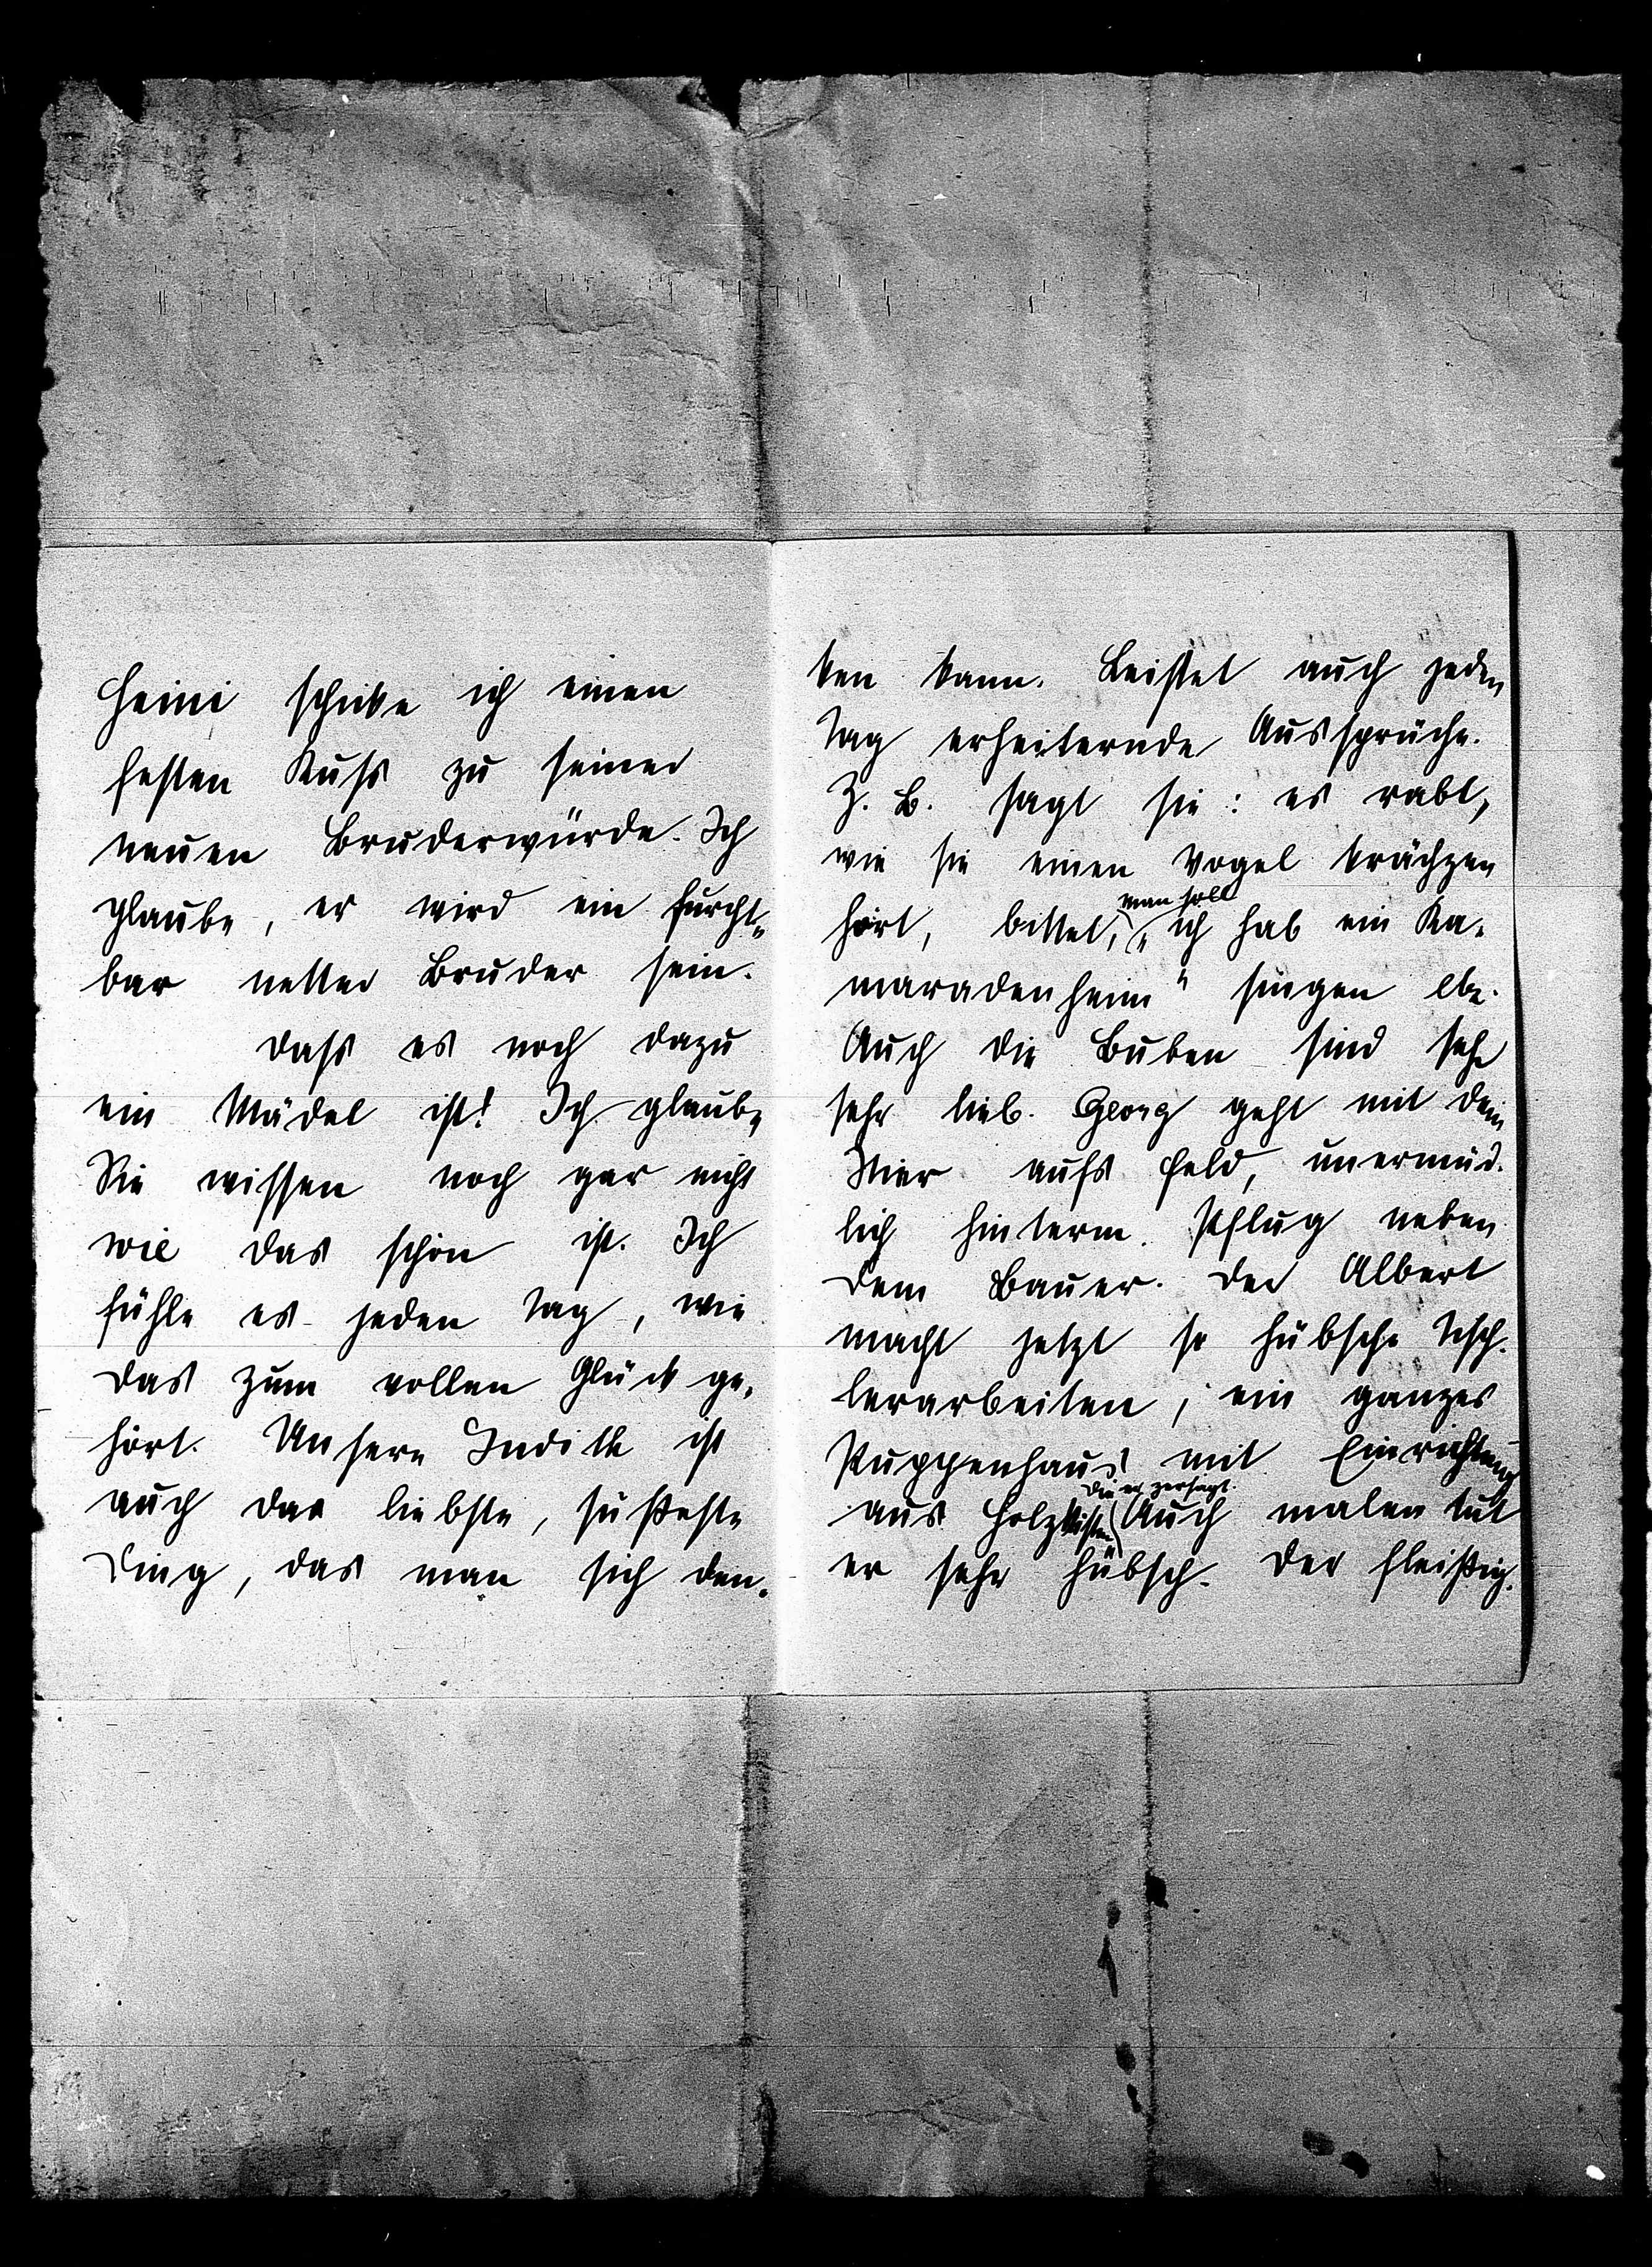 Heini schicke ich einen
festen Kuss zu seiner
neuen Bruderwürde. Ich
glaube, er wird ein furcht-
bar netter Bruder sein.
Dass es noch dazu
ein Mädel ist! Ich glaube
Sie wissen noch gar nicht
wie das schön ist. Ich
fühle es jeden Tag, wie
das zum vollen Glück ge-
hört. Unsere Judith ist
auch das liebste, süßeste
Ding, das man sich den-
ken kann. Leistet auch jeden
Tag erheiternde Aussprüche.
Z. B. sagt sie: es rabt,
wie sie einen Vogel krächzen
man soll
hört, bittet, „ich hab ein Ka-
maradenheim" singen etc.
Auch die Buben sind sehr
sehr lieb. Georg geht mit dem
Stier aufs Feld, unermüd-
lich hinterm Pflug neben
dem Bauer. Der Albert
macht jetzt so hübsche Tisch-
lerarbeiten, ein ganzes
Puppenhaus mit Einrichtung
die er zersägt.
aus Holzkisten Auch malen tut
er sehr hübsch. Der fleißig.